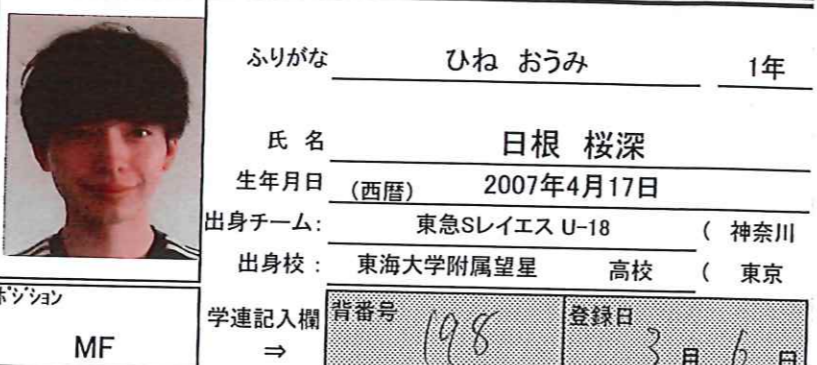 ふりがな ひね おうみ 1年
氏 名 日根 桜深
生年月日 (西暦) 2007年4月17日
出身チーム: 東急Sレイエス U-18 ( 神奈川
出身校 : 東海大学附属望星 高校 ( 東京
ポジション
MF
学連記入欄 ⇒ 背番号 198 登録日 3月 6日